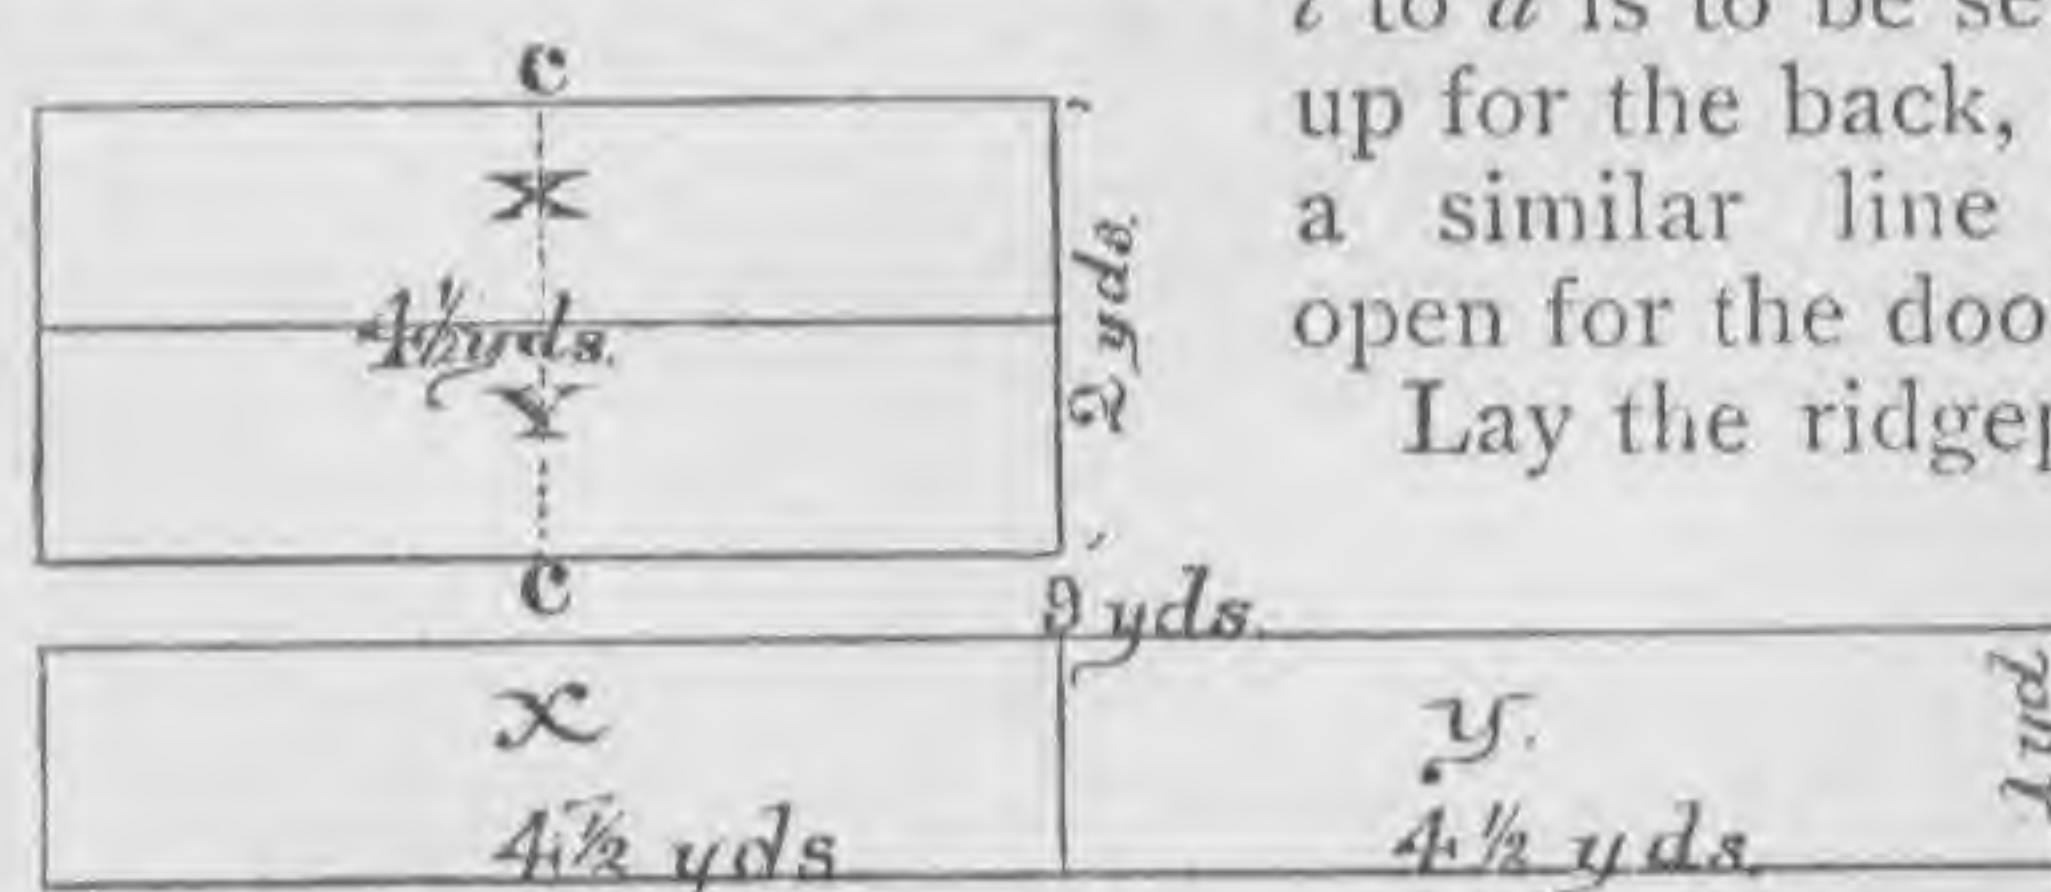 c
X
4½ yds.
Y
2 yds.
c
9 yds.
x
4½ yds
y.
4½ yds.
1 yd
to a is to be
up for the back,
a similar line
open for the
Lay the